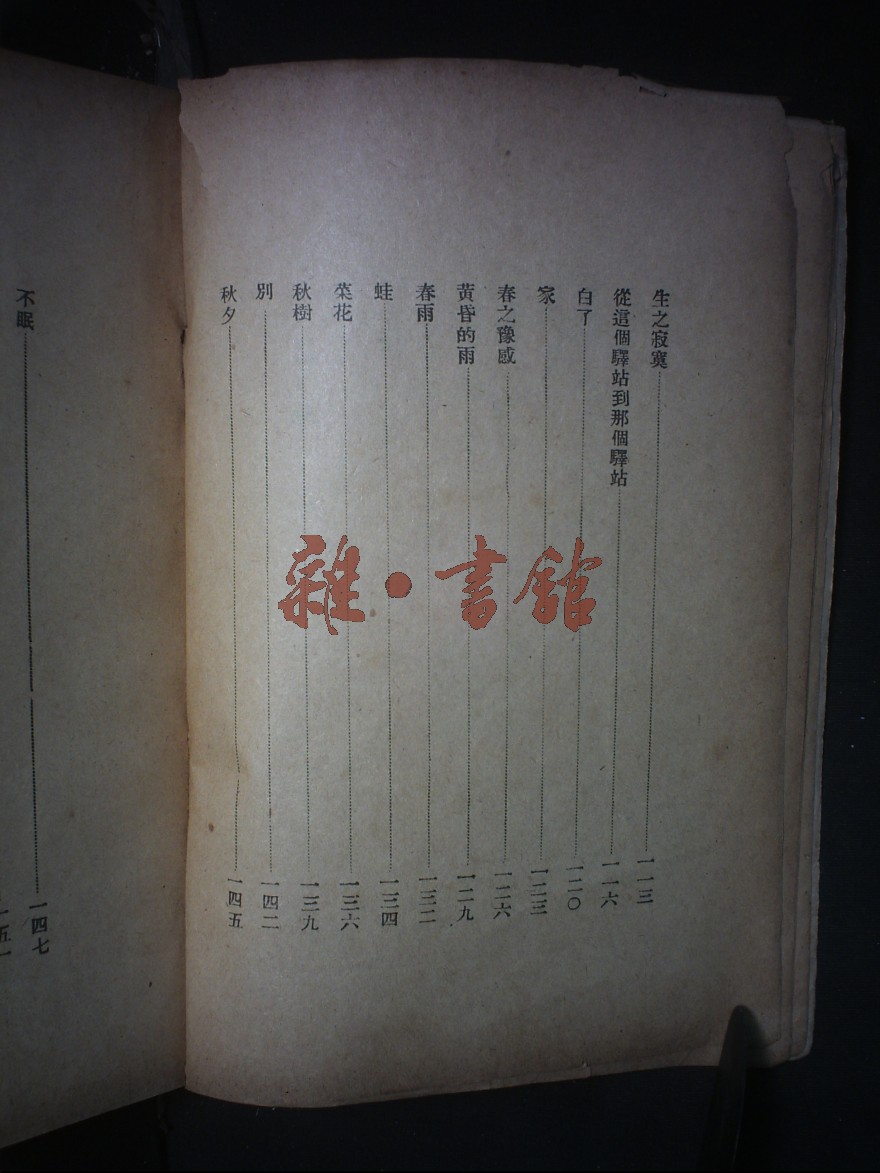 生之寂寞……一一三
從這個驛站到那個驛站……一一六
白了……一二〇
家……一二三
春之豫感……一二六
黃昏的雨……一二九
春雨……一三二
蛙……一三四
菜花……一三六
秋樹……一三九
別……一四二
秋夕……一四五
不眠……一四七
一五一
雜·書館